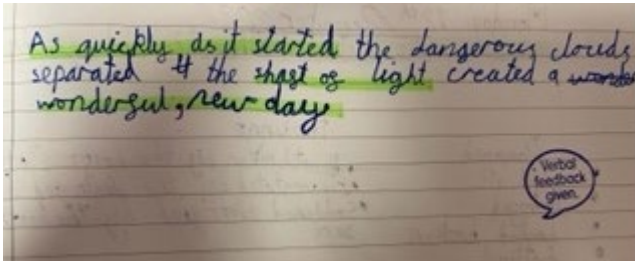 As quickly as it started the dangerous clouds
separated the shaft of light created a
wonderful, new day
Verbal
feedback
given.